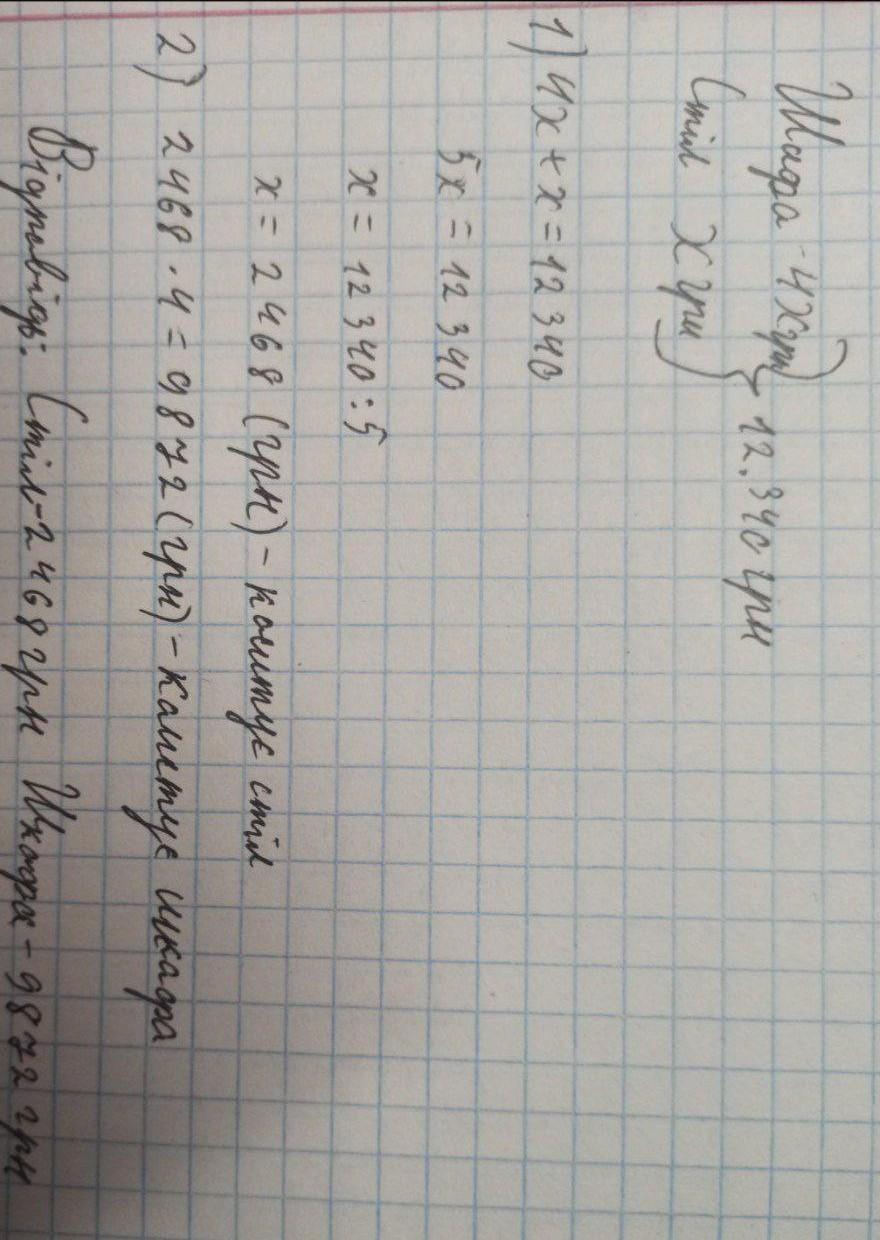 Шкафа - 4х грн
Стіл х грн
12.340 грн
1) 4х + х = 12 340
5х = 12 340
х = 12 340 : 5
х = 2468 (грн) - коштує стіл
2) 2468 · 4 = 9872 (грн) - коштує шкафа
Відповідь: Стіл - 2468 грн Шкафа - 9872 грн